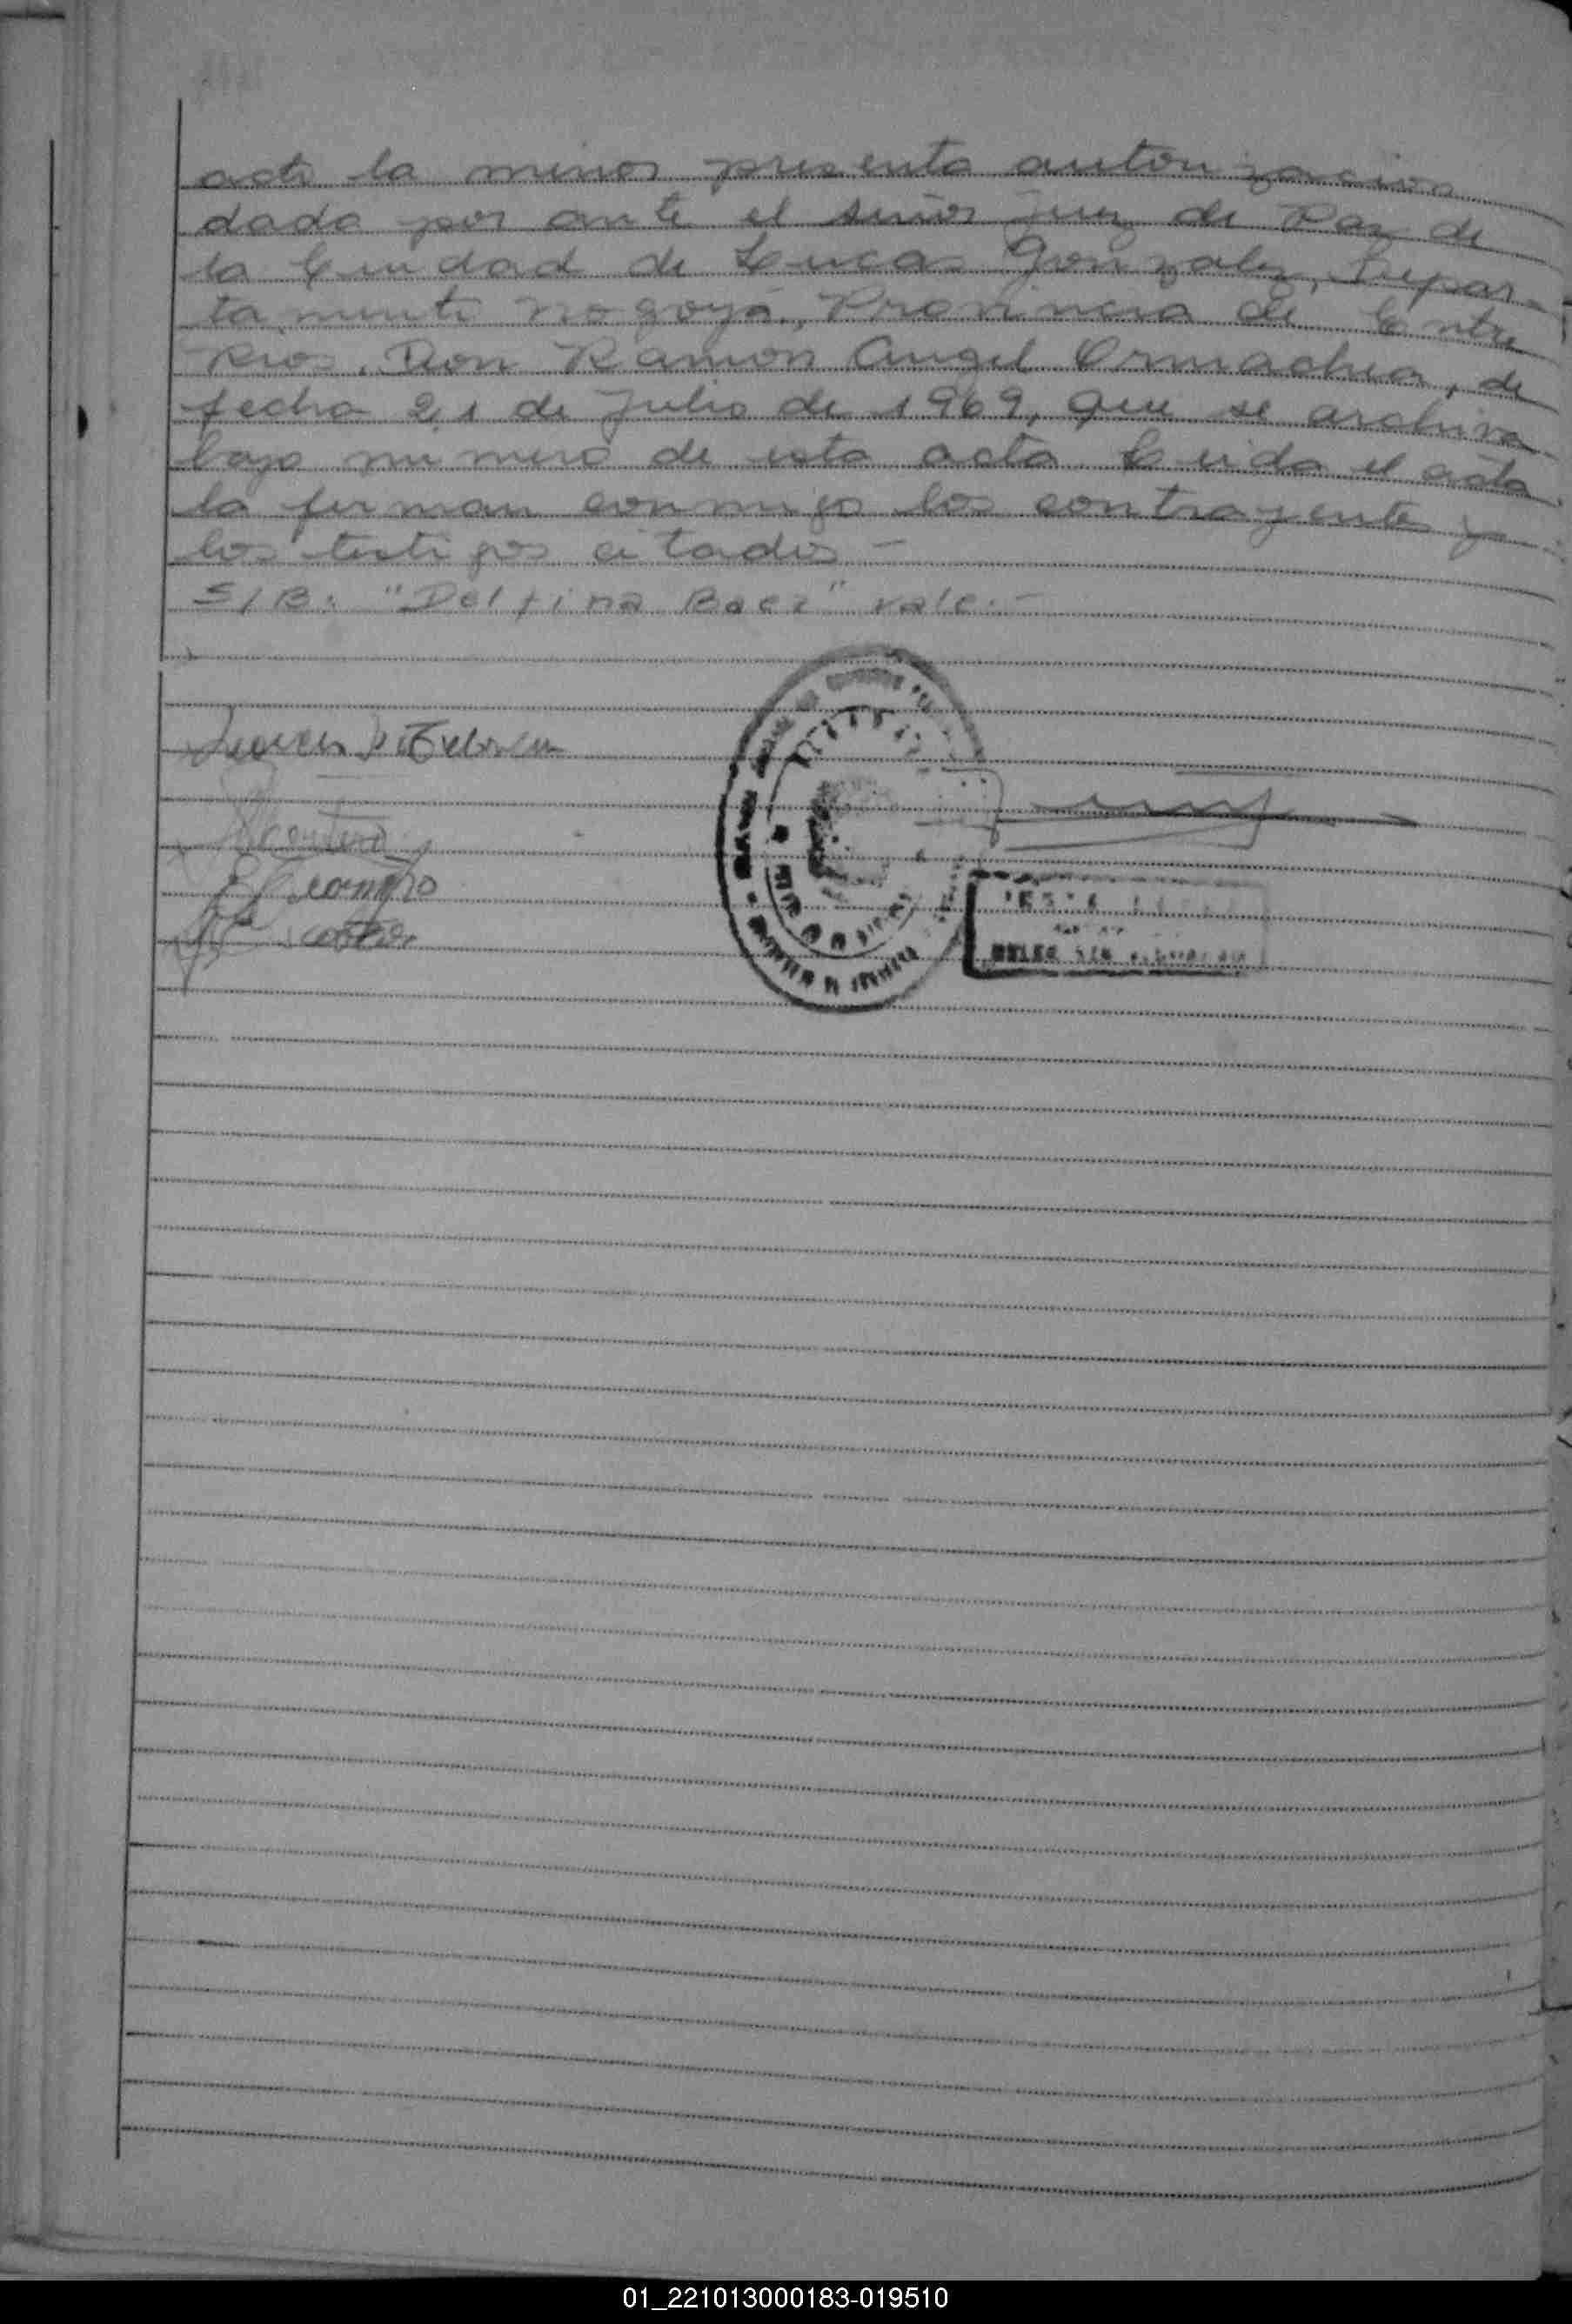 acto la menor presenta autorizacion
dada por ante el señor juez de Paz de
la Ciudad de Lucas Gonzalez, Depar-
tamento nogoyá, Provincia de Entre
Rios. Don Ramon Angel Ormachea, de
fecha 21 de Julio de 1969, que se archiva
bajo numero de esta acta. Leida el acta
la firman conmigo los contrayentes y
los testigos citados -
S/B: "Delfina Baez" vale.-
Ocampo
01_221013000183-019510